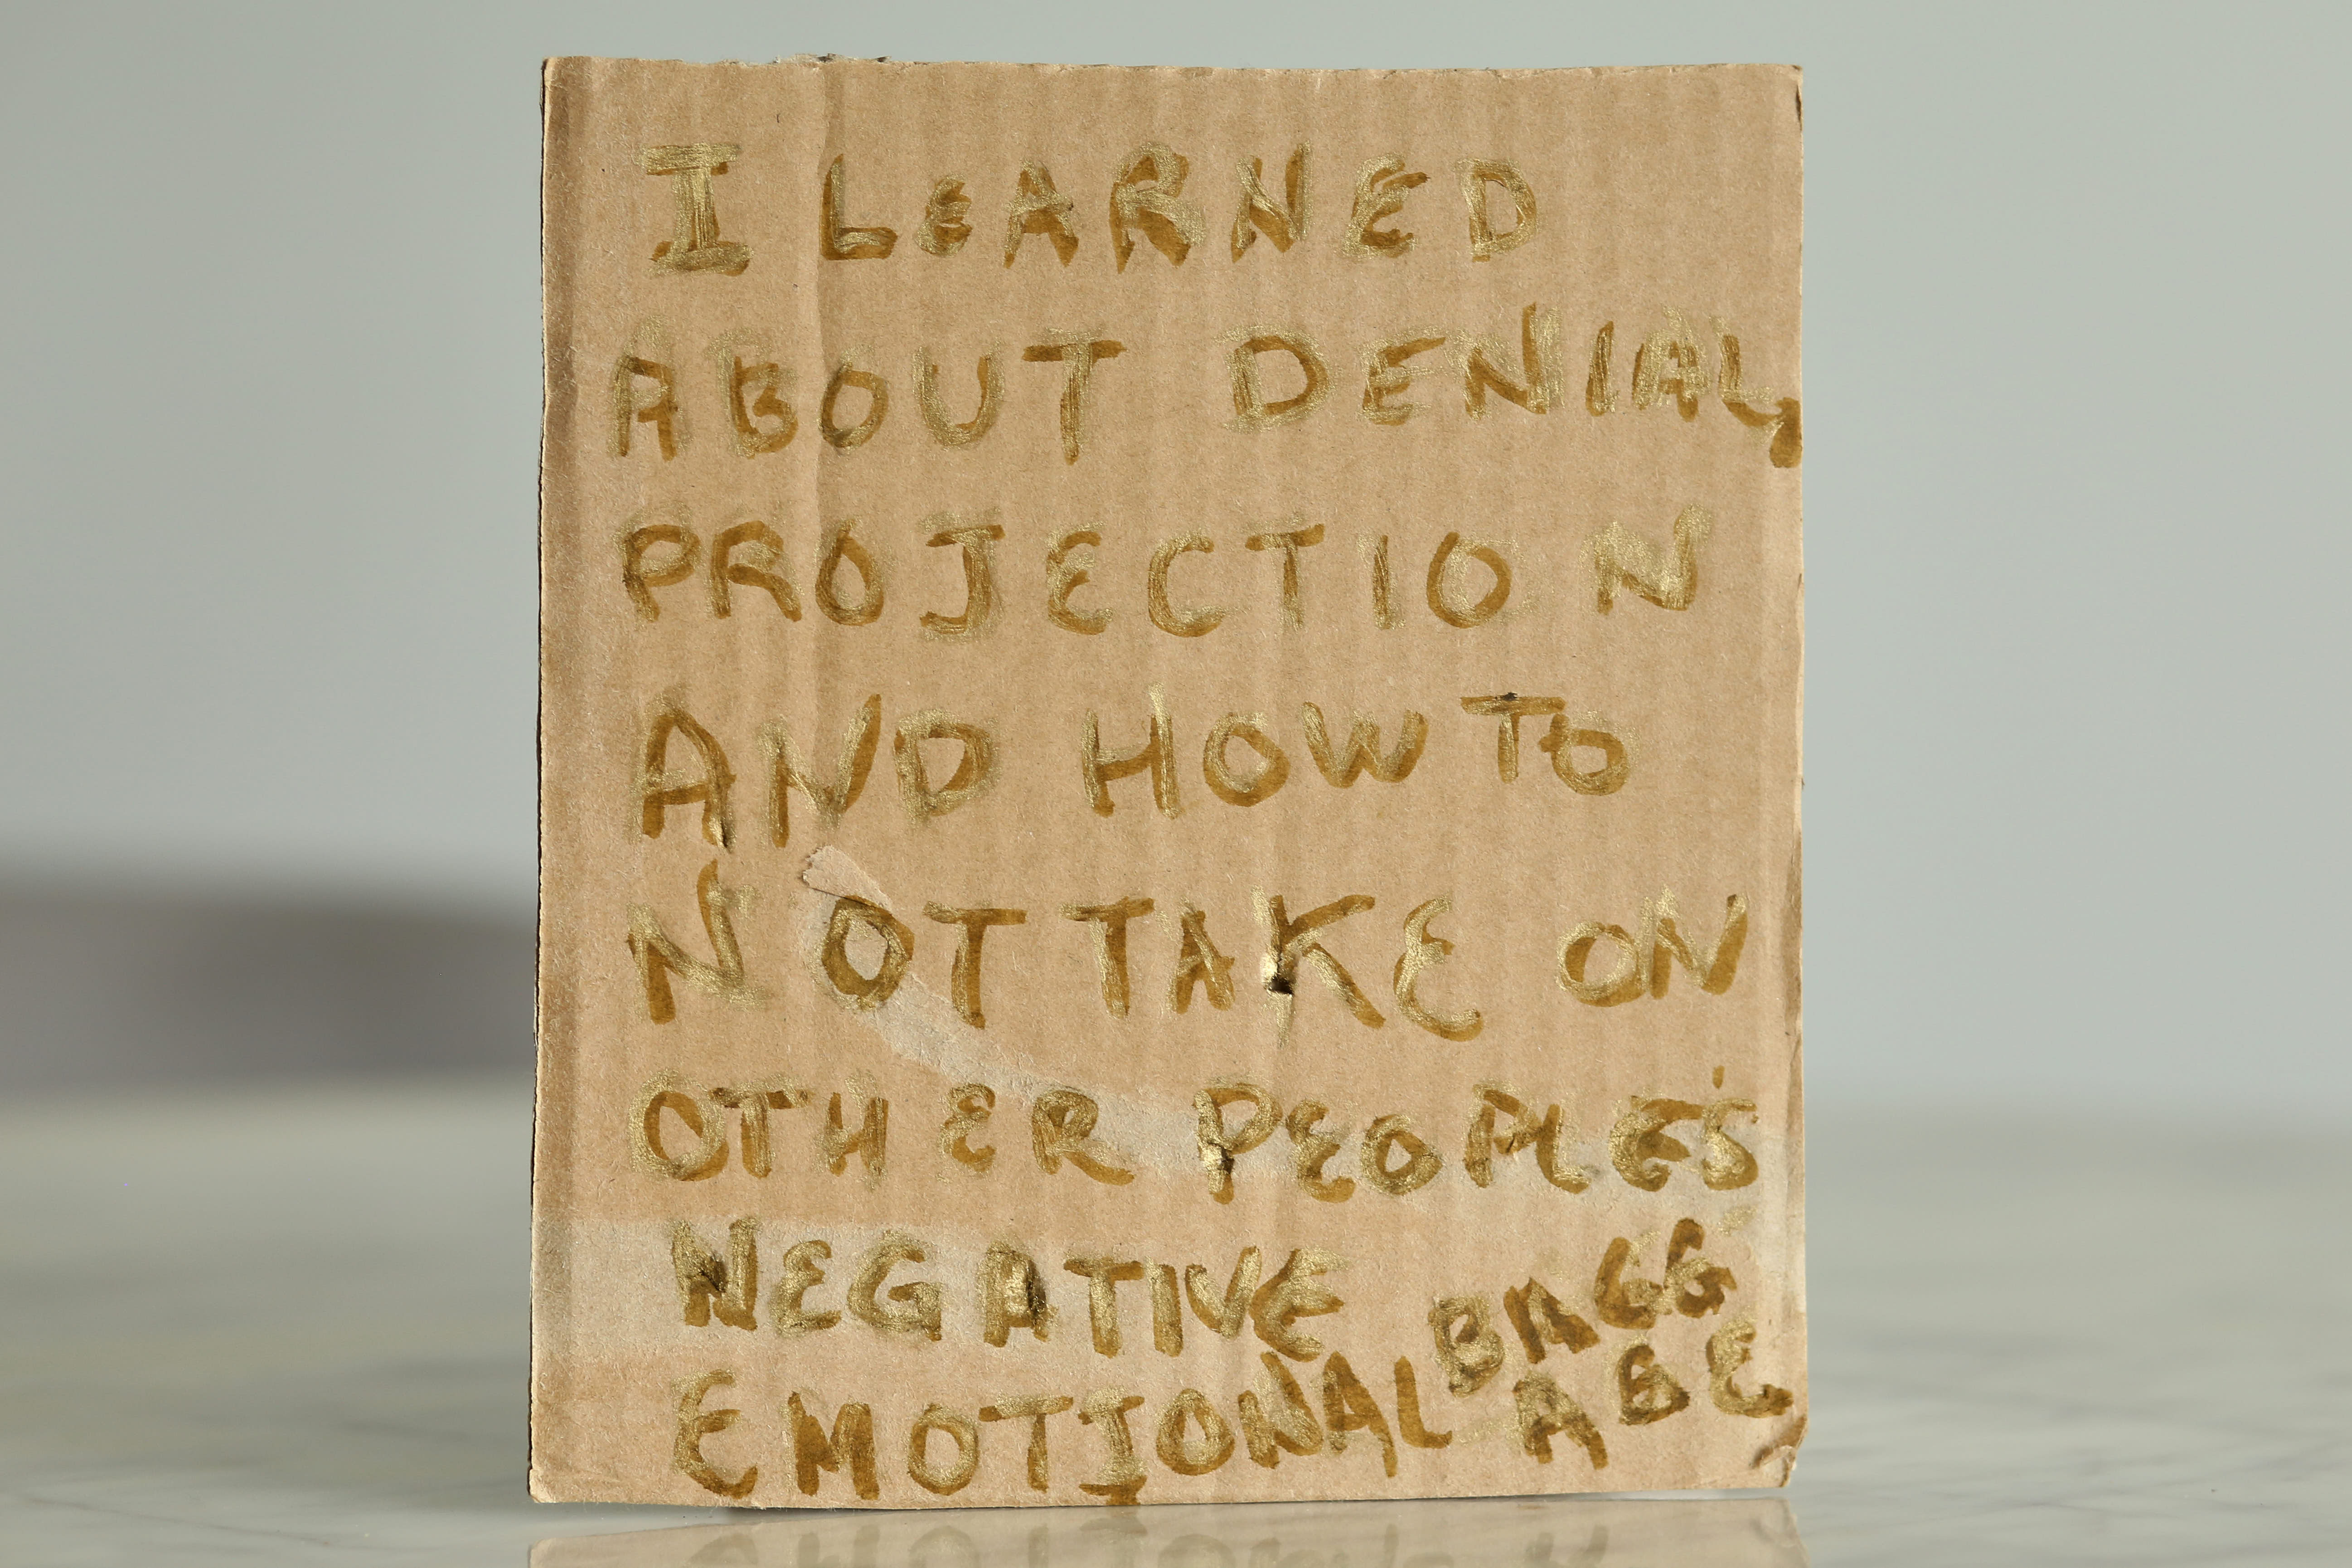 I LeARNED
ABOUT DENIAL,
PROJECTION
AND HOW TO
NOT TAKE ON
OTHER PEOPLE'S
NEGATIVE
EMOTIONAL BAGG
AGE